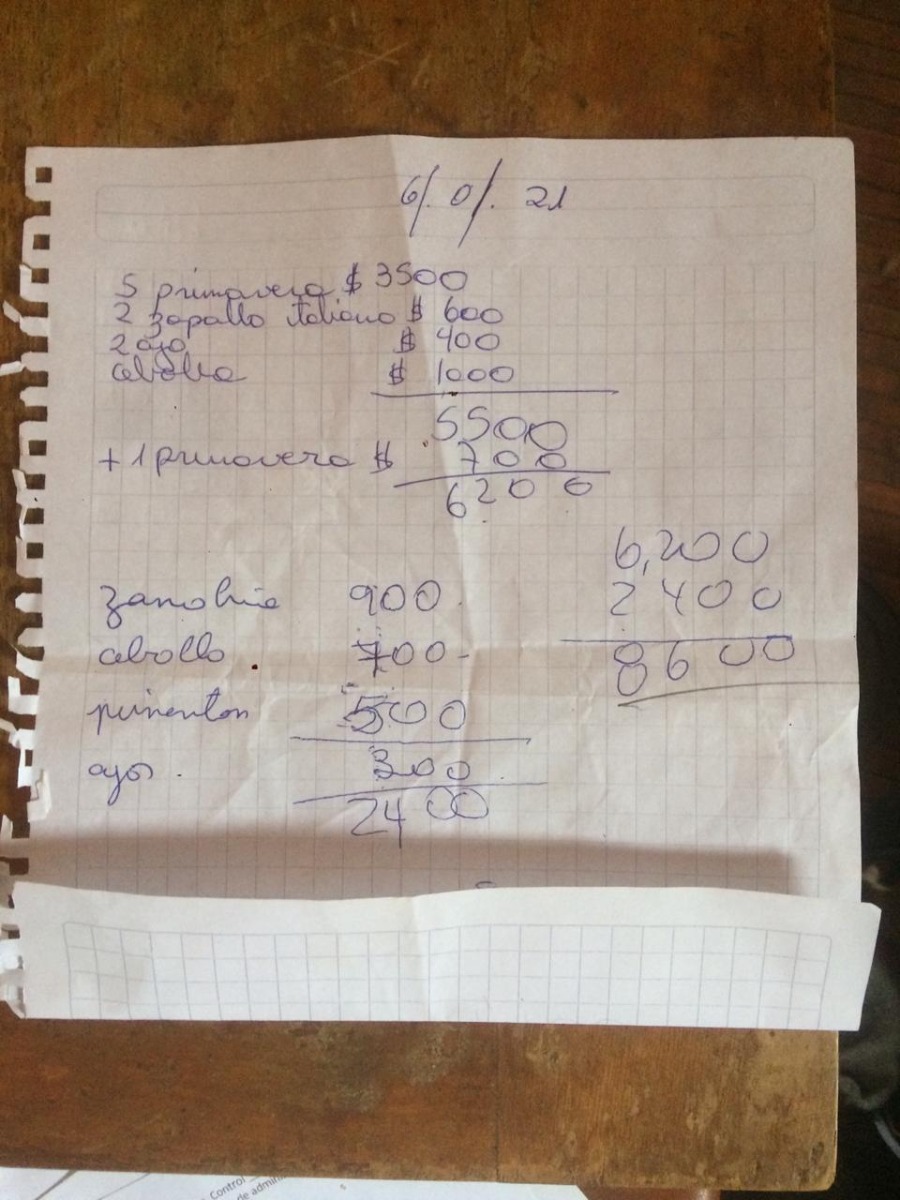 6/. 0/. 21
5 primavera $ 3500
2 zapallo italiano $ 600
2 ajo $ 400
cebolla $ 1000
5500
+ 1 primavera $ 700
6200
zanohria 900
cebolla 700
pimenton 500
ajos 300
2400
6,200
2400
8600
Control
de admini